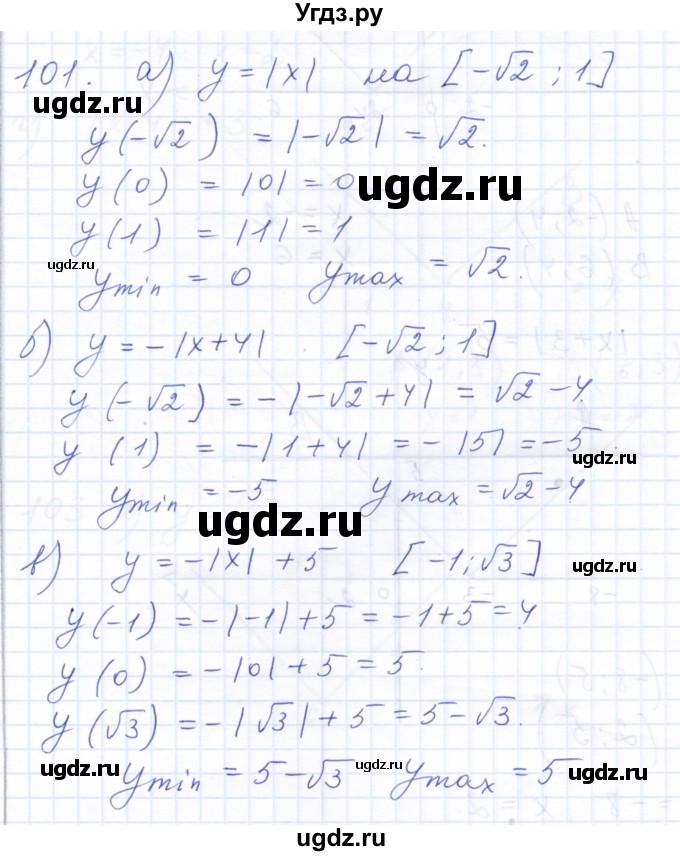 Угдз.ру
101. а) y = |x| на [-√2 ; 1]
ugdz.ru
y(-√2) = |-√2| = √2.
y(0) = |0| = 0
ugdz.ru
y(1) = |1| = 1
ugdz.ru
ymin = 0 ymax = √2.
б) y = -|x+4| [-√2 ; 1]
y(-√2) = -|-√2+4| = √2-4.
y(1) = -|1+4| = -|5| = -5.
ugdz.ru
ymin = -5 ymax = √2-4
ugdz.ru
в) y = -|x| + 5 [-1; √3]
y(-1) = -|-1|+5 = -1+5 = 4
y(0) = -|0|+5 = 5.
y(√3) = -|√3|+5 = 5-√3.
ugdz.ru ugdz.ru ugdz.ru
ymin = 5-√3 ymax = 5
ugdz.ru